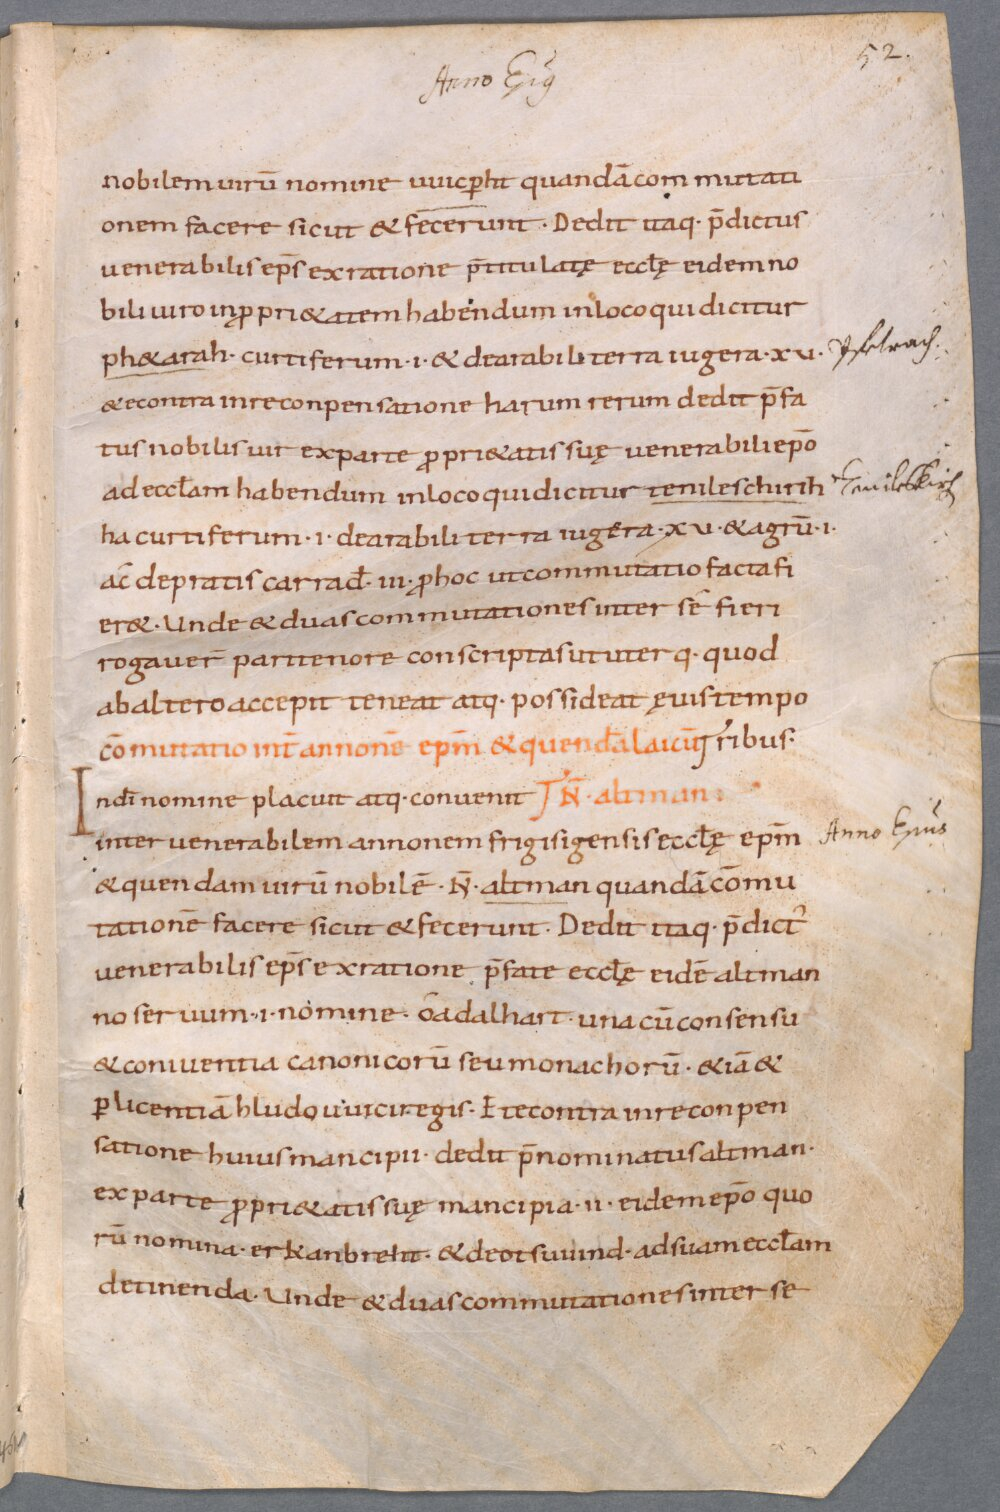 52.
Anno Epỹ
nobilem uirū nomine uuicp̱ht quandā commutati
onem facere sicut & fecerunt · Dedit itaq· p̄dictus
uenerabilis ep̄s ex ratione p̄titulatę ecclę eidem no
bili uiro in ꝓpri&atem habendum in loco qui dicitur
ph&arah · curtiferum · i · & dearabili terra iugera · xu ·
& econtra in reconpensatione harum rerum dedit p̄fa
tus nobilis uir ex parte ꝓpri&atis suę uenerabili ep̄o
ad eccłam habendum in loco qui dicitur tenileschirih
Teuileskirch
ha curtiferum · i · dearabili terra iugera · xu · & agrū · i ·
ac̄ de pratis carrađ · iii · ꝓ hoc ut commutatio facta fi
er& · Unde & duas commutationes inter se fieri
rogauer̄ pari tenore conscriptas ut uterq· quod
ab altero accepit teneat atq· possideat ęuis tempo
ribus·
cōmutatio int̄ annonē ep̄m & quendā laicū
N̄ · altman ·
In dī nomine placuit atq· conuenit
inter uenerabilem annonem frigisigensis ecclę ep̄m
Anno Epūs
& quendam uirū nobilē · N̄ · altman quandā cōmu
tationē facere sicut & fecerunt · Dedit itaq· p̄dict᾽
uenerabilis ep̄s ex ratione p̄fate ecclę eidē altman
no seruum · i · nomine · ōadalhart · una cū consensu
& coniuentia canonicorū seu monachorū · & iā &
ꝑ licentiā hludouuici regis · Et econtra in reconpen
satione huius mancipii · dedit p̄nominatus altman ·
ex parte ꝓpri&atis suę mancipia · ii · eidem ep̄o quo
rū nomina · erkanbreht · & deotsuuind · ad suam eccłam
detinenda · Unde & duas commutationes inter se